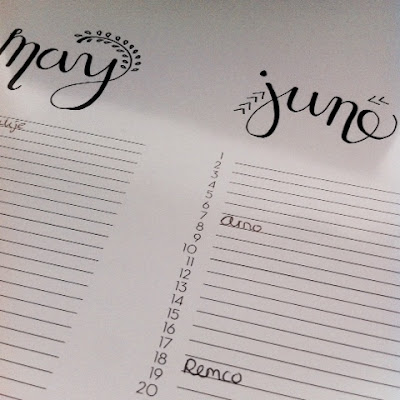 may
june
1
2
3
4
5
6
7
8 Arno
9
10
11
12
13
14
15
16
17
18
19 Remco
20